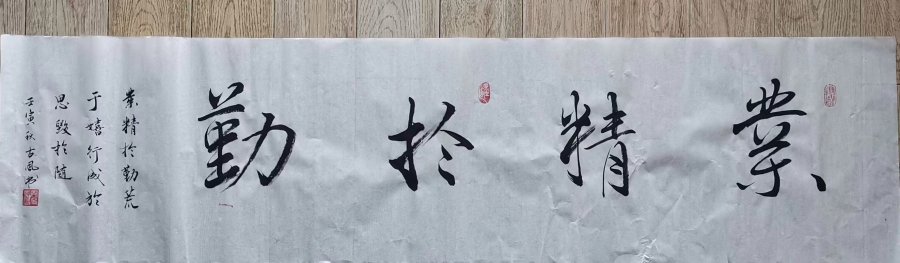 業精於勤
業精於勤荒
于嬉行成於
思毁於随
壬寅秋古風书